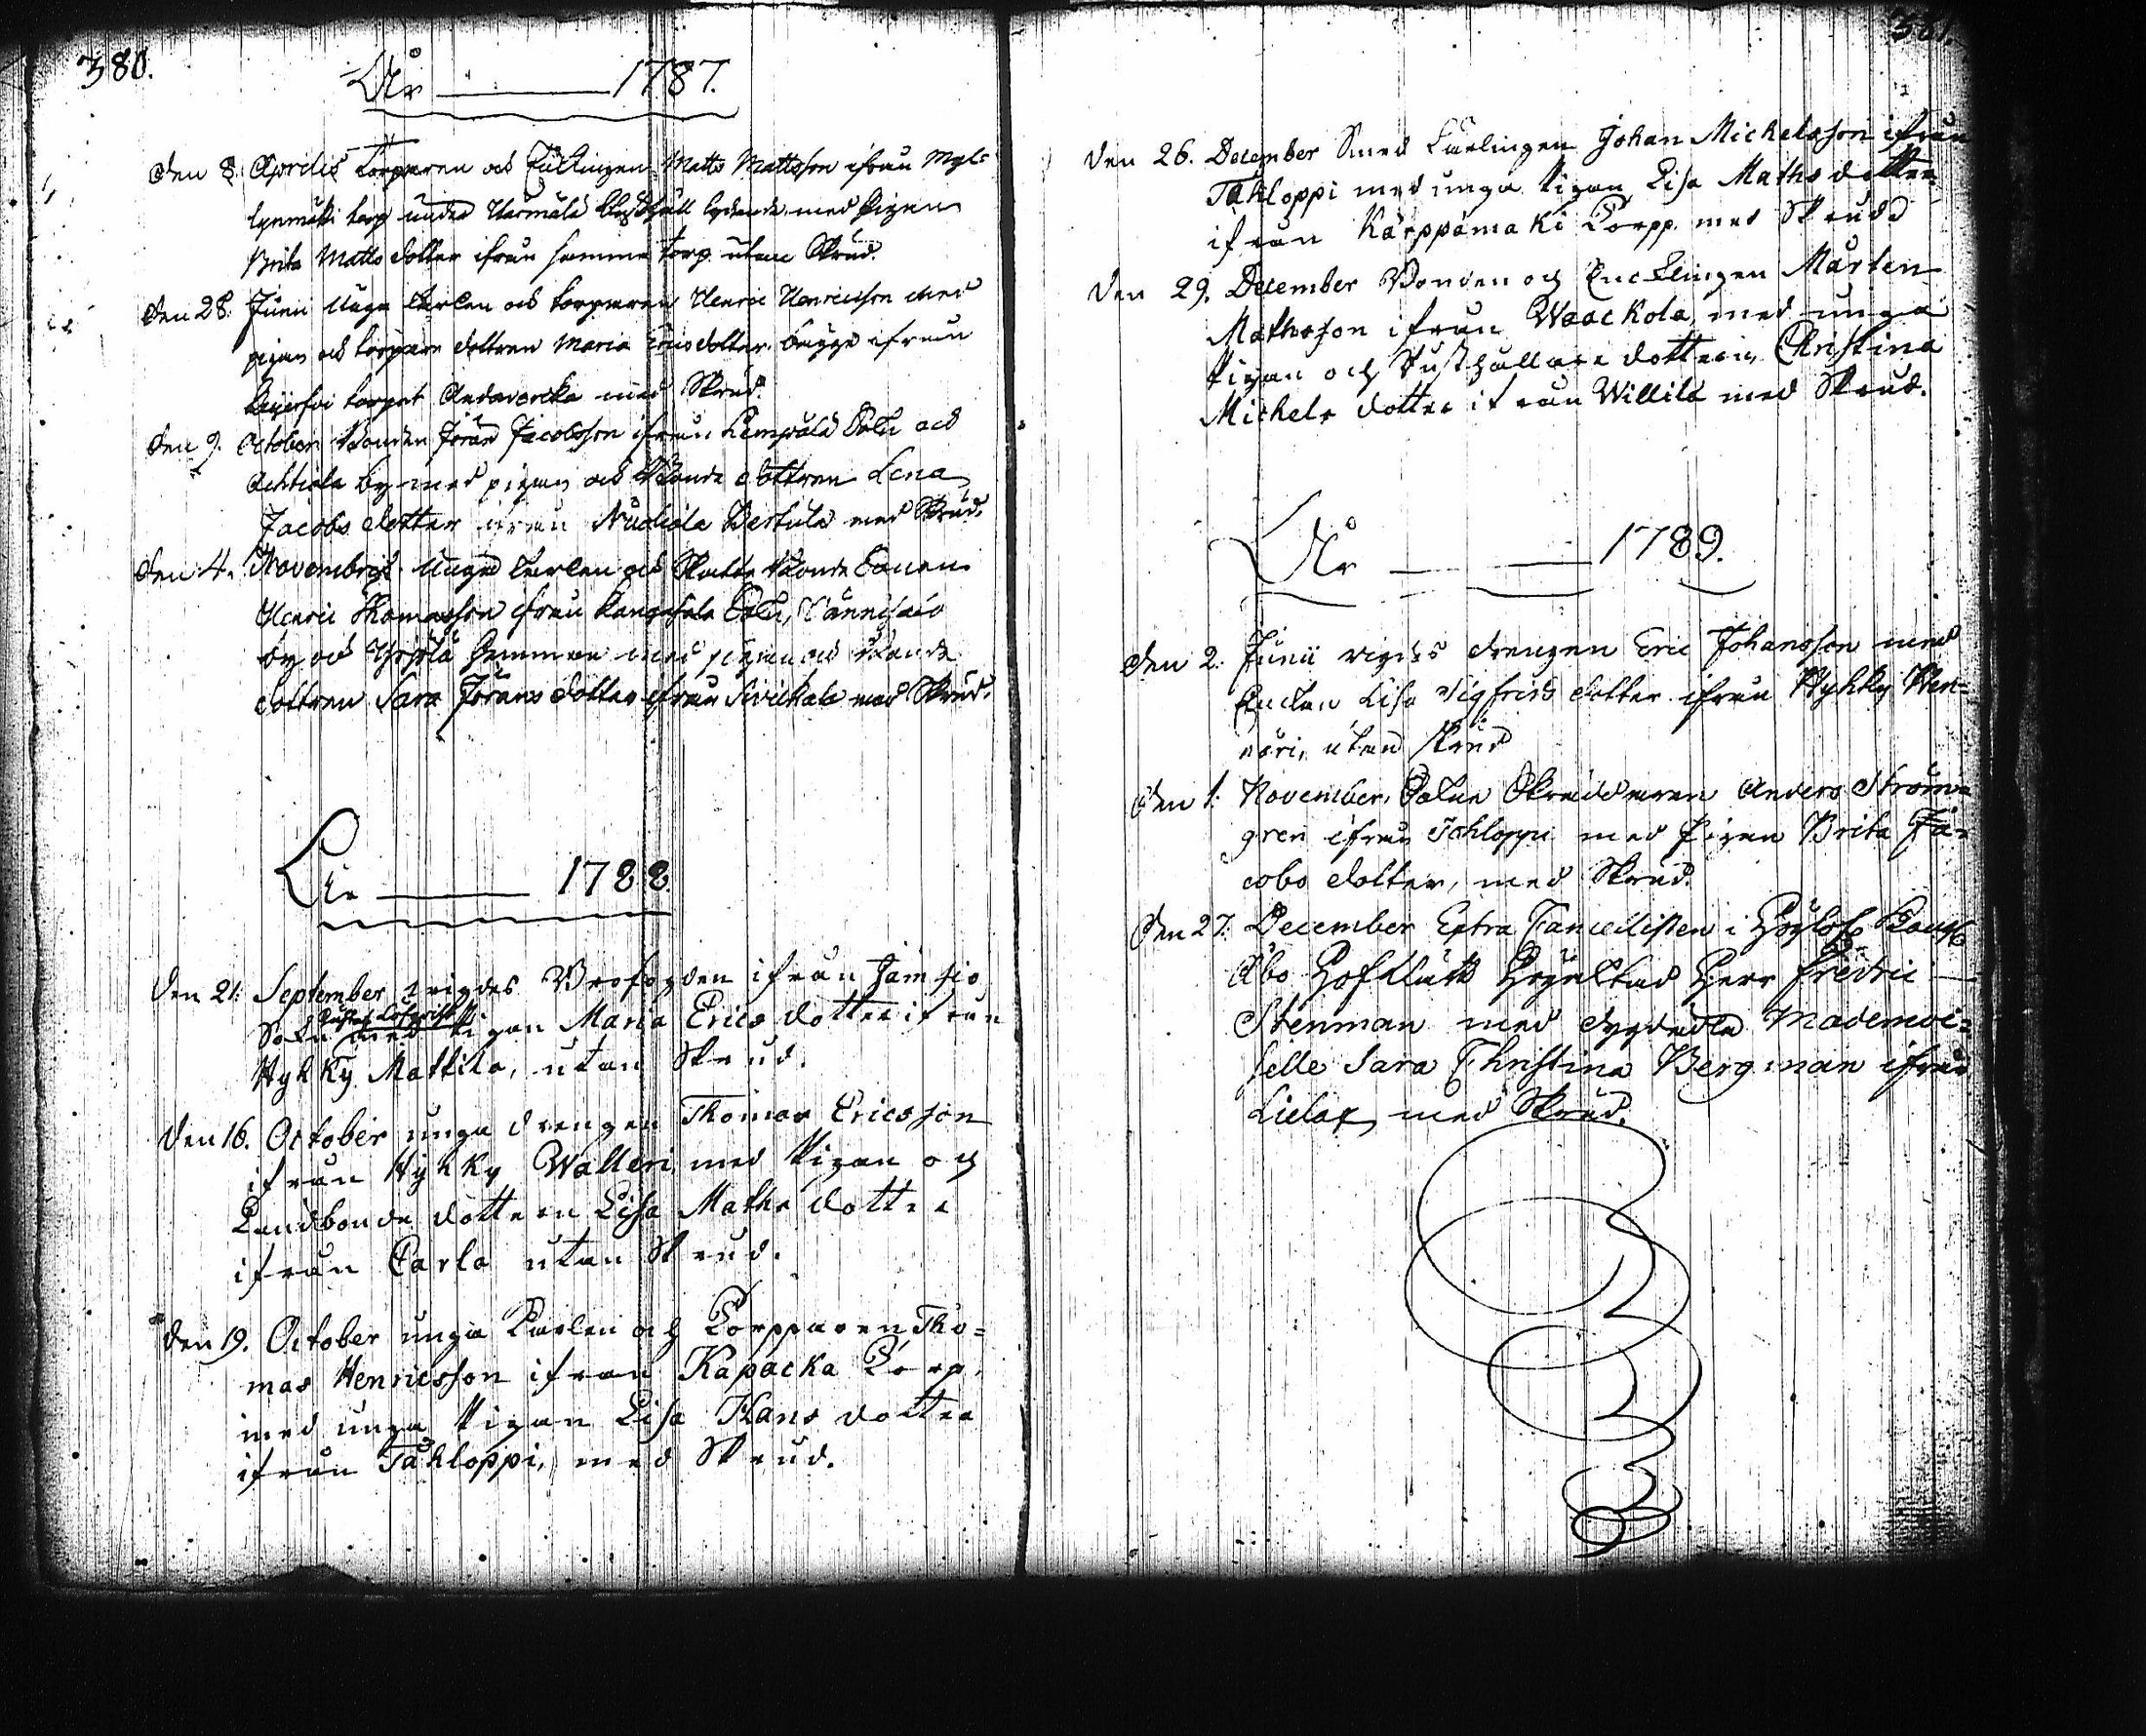 380.
År 1787.
den 8. Aprilis Torparen och Enklingen Matts Mattsson ifrån Myl-
lynmäki torp under Harmala lydande med Pigan
Brita Matts dotter ifrån samma torp utan Skrud.
den 28. Junii Unga Karlen och torparen Henric Henricsson med
pigan och torpare dottren Maria Erics dotter bägge ifrån
torpet med Skrud.
den 9. October Bonden Jöran Jacobsson ifrån Lempälä Sokn och
Achtiala by med pigan och Bonde dottren Lena
Jacobs dotter ifrån Nuoliala Bertula med Skrud.
den 4. Novembris Unga Karlen och Skatte Bonde Sonen
Henric Thomasson ifrån Kangasala Sokn,
by och hemman med pigan och Bonde
dottren Sara Jörans dotter ifrån med Skrud.
År 1788
den 21. September vigdes Brofogden ifrån Jämsio
Gustaf Löfqvist
Sokn med Pigan Maria Erics dotter ifrån
Hykky Mattila, utan Skrud.
den 16. October unga drengen Thomas Ericsson
ifrån Hykky Walleri med Pigan och
Landbonde dottren Lisa Maths dotter
ifrån Carla utan Skrud.
den 19. October unga Karlen och Torpparen Tho=
mas Henricsson ifrån Kapacka Torp,
med unga Pigan Lisa Hans dotter
ifrån Tahloppi, med Skrud.
381.
den 26. December Smed Kärlingen Johan Michelsson ifrån
Tahloppi med unga Pigan Lisa Maths dotter
ifrån Kärppämäki Torpp med Skrud
den 29. December Bonden och Encklingen Mårten
Mathsson ifrån Waackola, med unga
Pigan och Rusthållare dottern Christina
Michels dotter ifrån Willilä med Skrud.
År 1789.
den 2. Junii vigdes drengen Eric Johansson med
Enckan Lisa Sigfrids dotter ifrån Hykky Hen=
neri, utan skrud
den 1. November, Sokne Skräddaren Anders Ström=
gren ifrån Tahloppi med Pigan Brita Ja=
cobs dotter, med Skrud.
den 27. December Extra Cancellisten i Höglofl. Kongl.
Åbo Hofrätt Högacktad Herr Fredric
Stenman med dygdädla Mademoi=
selle Sara Christina Bergman ifrån
Lielax med Skrud.